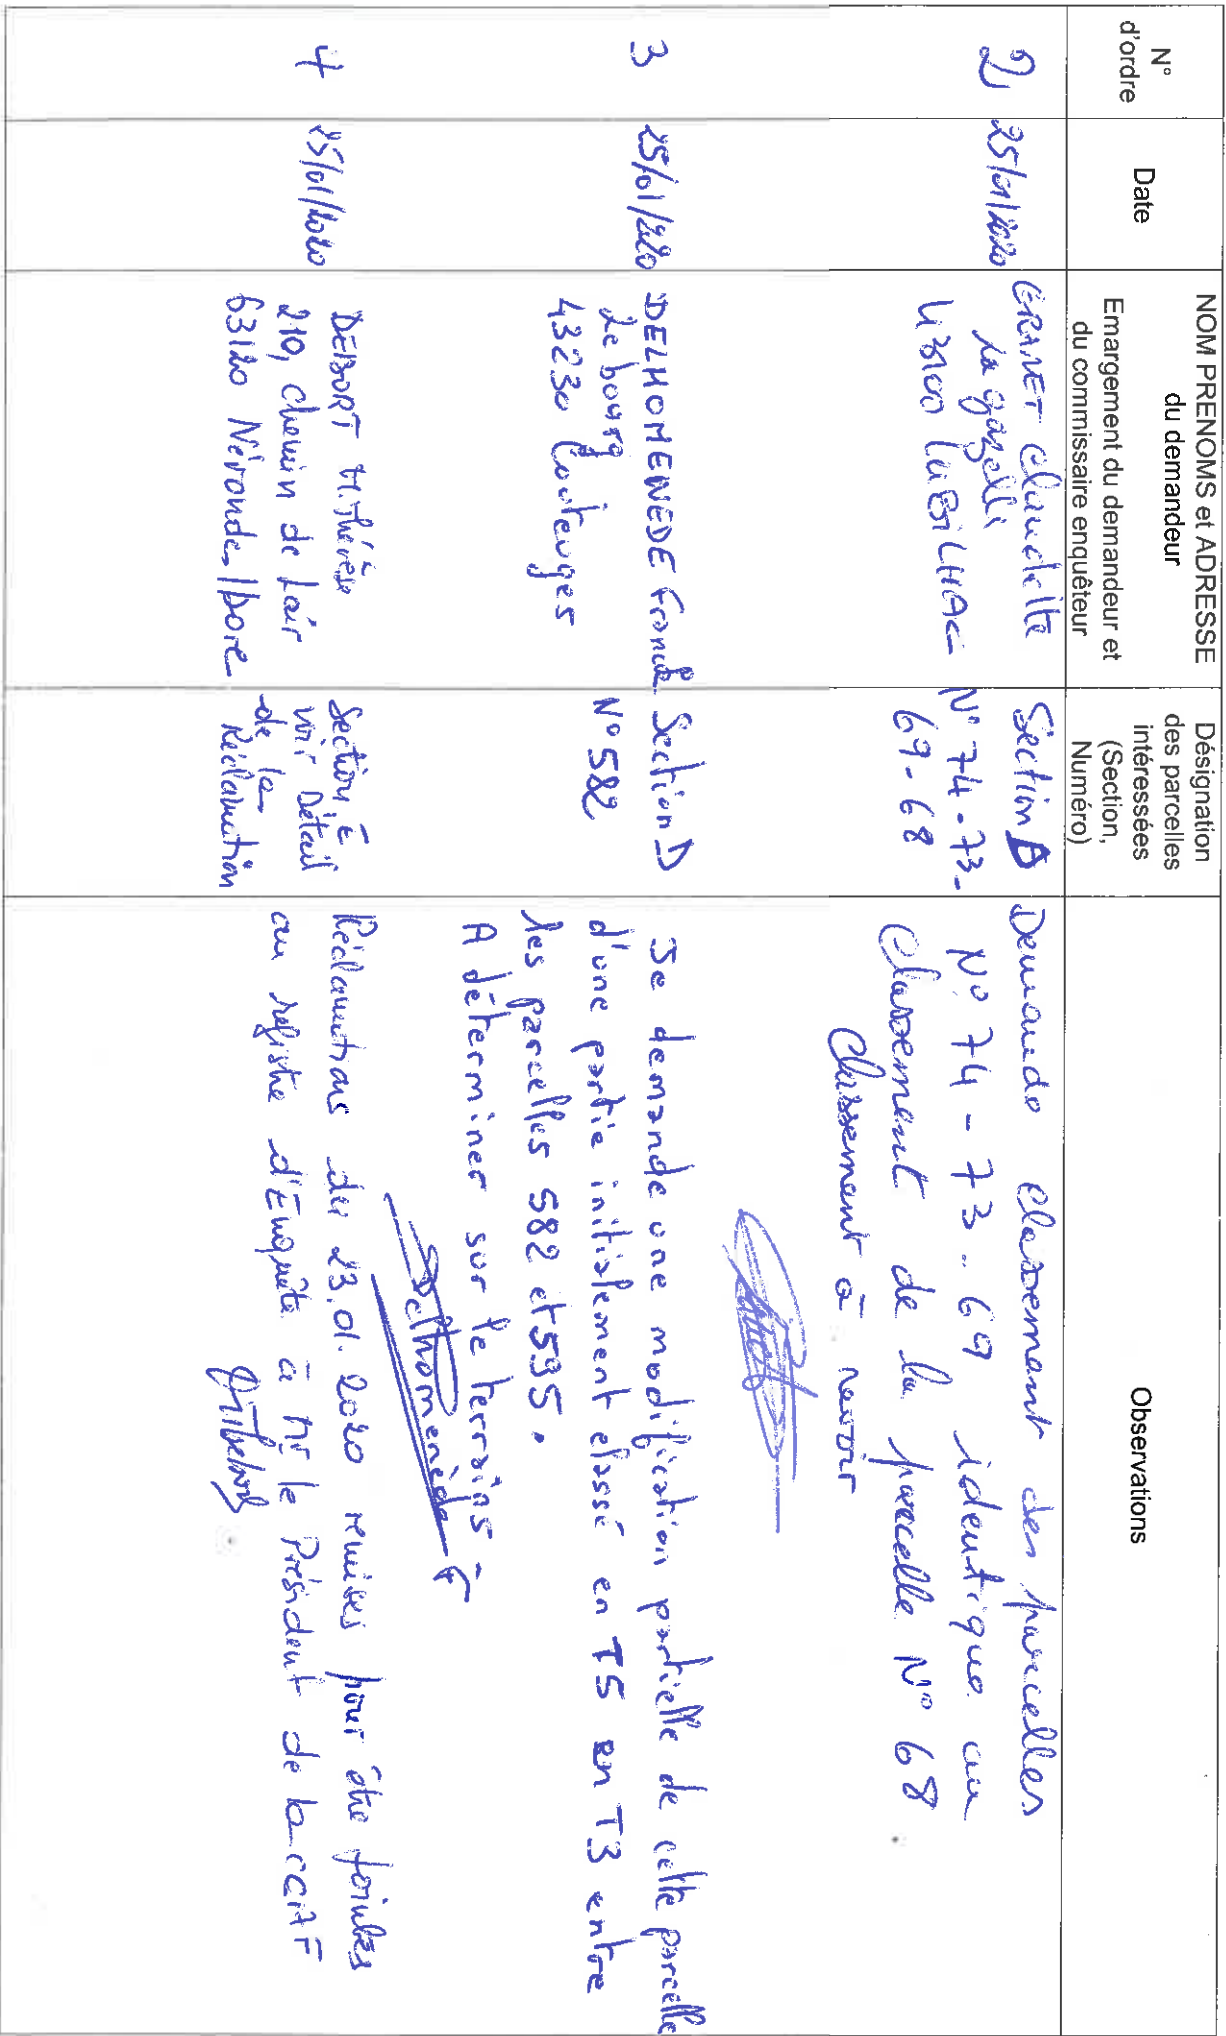 N°
d'ordre
Date
NOM PRENOMS et ADRESSE
du demandeur
Emargement du demandeur et
du commissaire enquêteur
Désignation
des parcelles
intéressées
(Section,
Numéro)
Observations
2
25/01/2020
GRANET Claudette
La gazelle
43100 LUBILHAC
Section D
N° 74-73-
69-68
Demande classement des parcelles
N° 74 - 73 - 69 identique au
classement de la parcelle N° 68
Classement à revoir
3
25/01/2020
DELHOMENEDE Franck
Le bourg
43230 Couteuges
Section D
N° 582
Je demande une modification partielle de cette parcelle
d'une partie initialement classé en T5 en T3 entre
les parcelles 582 et 595.
A déterminer sur le terrains
Delhomenède F
4
25/01/2020
DEBORT M. Thérèse
210, chemin de l'air
63120 Néronde/Dore
Section E
voir Détail
de la
Réclamation
Réclamations du 23.01.2020 remises pour être jointes
au registre d'Enquête à Mr le Président de la CCAF